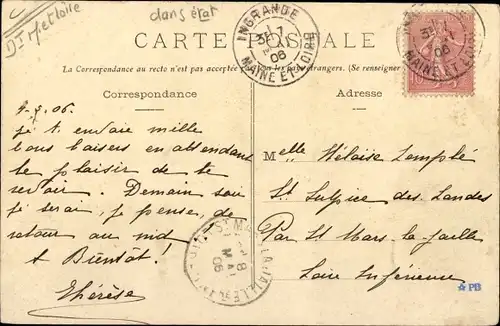 Dt M et loire
dans état
CARTE POSTALE
INGRANDE
MAINE ET LOIRE
06
La Correspondance au recto n'est pas acceptée par tous les pays étrangers. (Se renseigner
Correspondance
Adresse
06.
je t'envoie mille
bons baisers en attendant
le plaisir de te
revoir. Demain soir
je serai, je pense, de
retour au nid
A Bientôt!
Thérèse
Melle Héloïse Templé
St Sulpice des Landes
Par St Mars la Jaille
Loire Inférieure
ST MARS-LA-JAILLE
8
MAI
06
PB